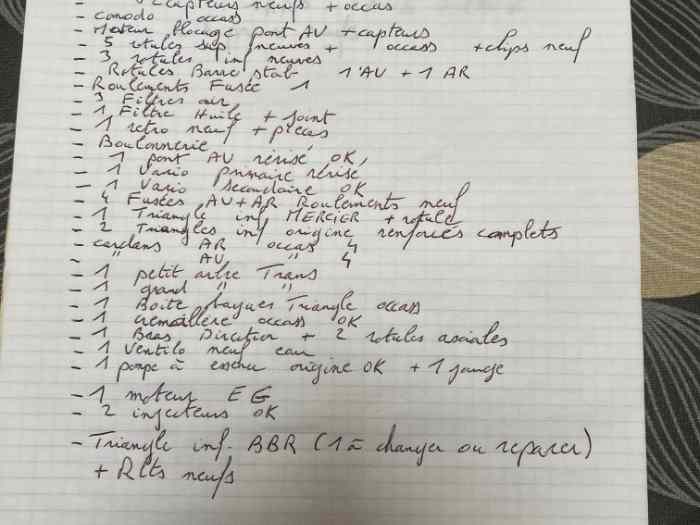 capteurs neufs + occas
- comodo occass
- Moteur blocage pont AV + capteurs
- 5 rotules sup neuves + occass + clips neuf
- 3 rotules inf neuves
- Rotules Barre stab 1 AV + 1 AR
- Roulements Fusée 1
- 3 Filtres air
- 1 Filtre Huile + Joint
- 1 retro neuf + pièces
- Boulonnerie
- 1 pont AV révisé OK,
- 1 Vario primaire révisé
- 1 Vario secondaire OK
- 4 Fusées AV+AR Roulements neuf
- 1 Triangle inf MERCIER + rotule
- 2 Triangles inf origine renforcés complets
- cardans AR occas 4
- " AV " 4
- 1 petit arbre Trans
- 1 grand " "
- 1 Boite bagues Triangle occass
- 1 crémaillère occass OK
- 1 Bras Direction + 2 rotules axiales
- 1 Ventilo neuf eau
- 1 pompe à essence origine OK + 1 jauge
- 1 moteur EG
- 2 injecteurs OK
- Triangle inf. BBR (1 à changer ou reparer)
+ Rlts neufs